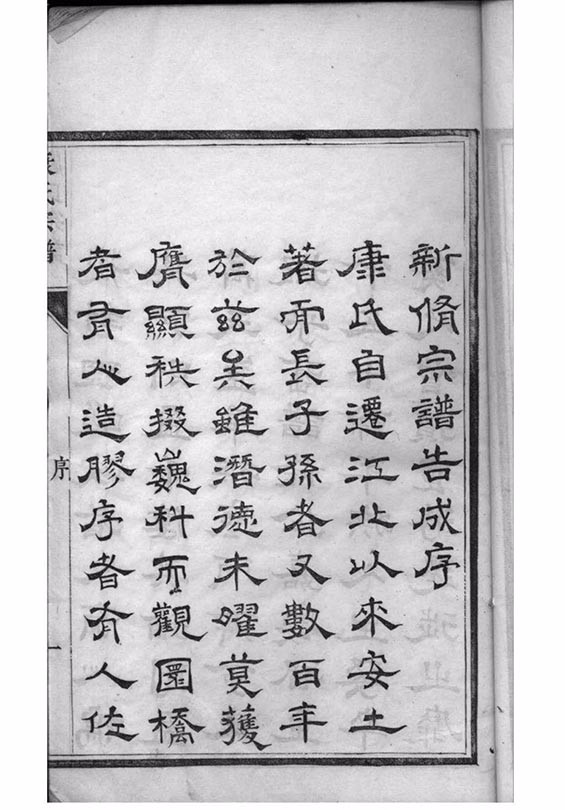 新脩宗譜告成序
康氏自遷江北以來安土
著而長子孫者又數百年
於兹矣雖潛德未曜莫獲
膺顯秩掇巍科而觀圜橋
者有人造膠序者有人佐
氏宗譜
序
一